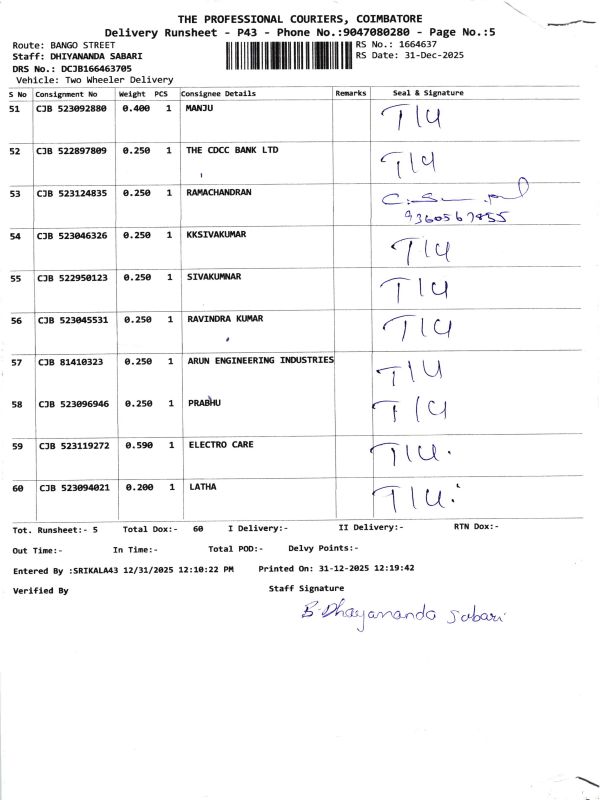 THE PROFESSIONAL COURIERS, COIMBATORE
Delivery Runsheet - P43 - Phone No.:9047080280 - Page No.:5
Route: BANGO STREET RS No.: 1664637
Staff: DHIYANANDA SABARI RS Date: 31-Dec-2025
DRS No.: DCJB166463705
Vehicle: Two Wheeler Delivery
S No Consignment No Weight PCS Consignee Details Remarks Seal & Signature
51 CJB 523092880 0.400 1 MANJU T/4
52 CJB 522897809 0.250 1 THE CDCC BANK LTD T/4
53 CJB 523124835 0.250 1 RAMACHANDRAN
9360567855
54 CJB 523046326 0.250 1 KKSIVAKUMAR T/4
55 CJB 522950123 0.250 1 SIVAKUMNAR T/4
56 CJB 523045531 0.250 1 RAVINDRA KUMAR T/4
57 CJB 81410323 0.250 1 ARUN ENGINEERING INDUSTRIES T/4
58 CJB 523096946 0.250 1 PRABHU T/4
59 CJB 523119272 0.590 1 ELECTRO CARE T/4.
60 CJB 523094021 0.200 1 LATHA T/4.
Tot. Runsheet:- 5 Total Dox:- 60 I Delivery:- II Delivery:- RTN Dox:-
Out Time:- In Time:- Total POD:- Delvy Points:-
Entered By :SRIKALA43 12/31/2025 12:10:22 PM Printed On: 31-12-2025 12:19:42
Verified By Staff Signature
B. Dhayananda Sabari